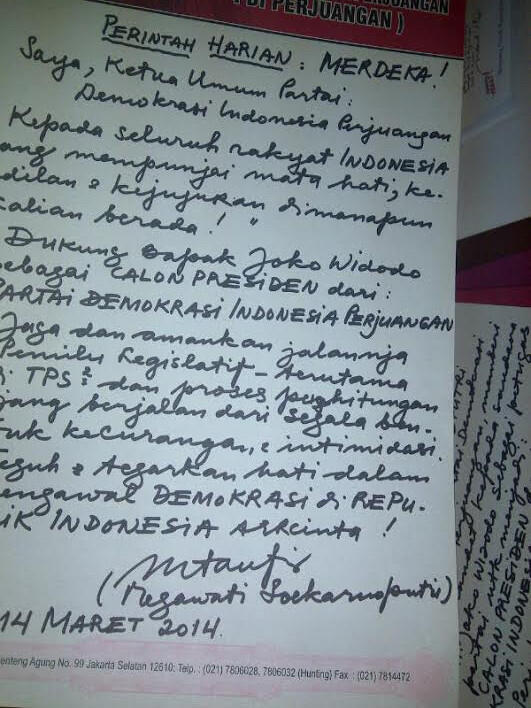 PERJUANGAN
( PDI PERJUANGAN )
PERINTAH HARIAN : MERDEKA !
Saya, Ketua Umum Partai :
Demokrasi Indonesia Perjuangan
Kepada seluruh rakyat INDONESIA
ang mempunjai mata hati, ke-
dilan & kejujuran dimanapun
kalian berada ! "
Dukung Bapak Joko Widodo
sebagai CALON PRESIDEN dari :
PARTAI DEMOKRASI INDONESIA PERJUANGAN
Jaga dan amankan jalannja
Pemilu Legislatif - terutama
di TPS² dan proses penghitungan
jang berjalan dari segala ben-
tuk kecurangan, & intimidasi.
Teguh & tegarkan hati dalam
engawal DEMOKRASI di REPU-
IK INDONESIA ARRcinta !
(Megawati Soekarnoputri)
14 MARET 2014.
enteng Agung No. 99 Jakarta Selatan 12610; Telp. : (021) 7806028, 7806032 (Hunting) Fax : (021) 7814472
Joko Widodo sebagai
partai utk menjadi
CALON PRESIDEN
KRASI INDONESIA